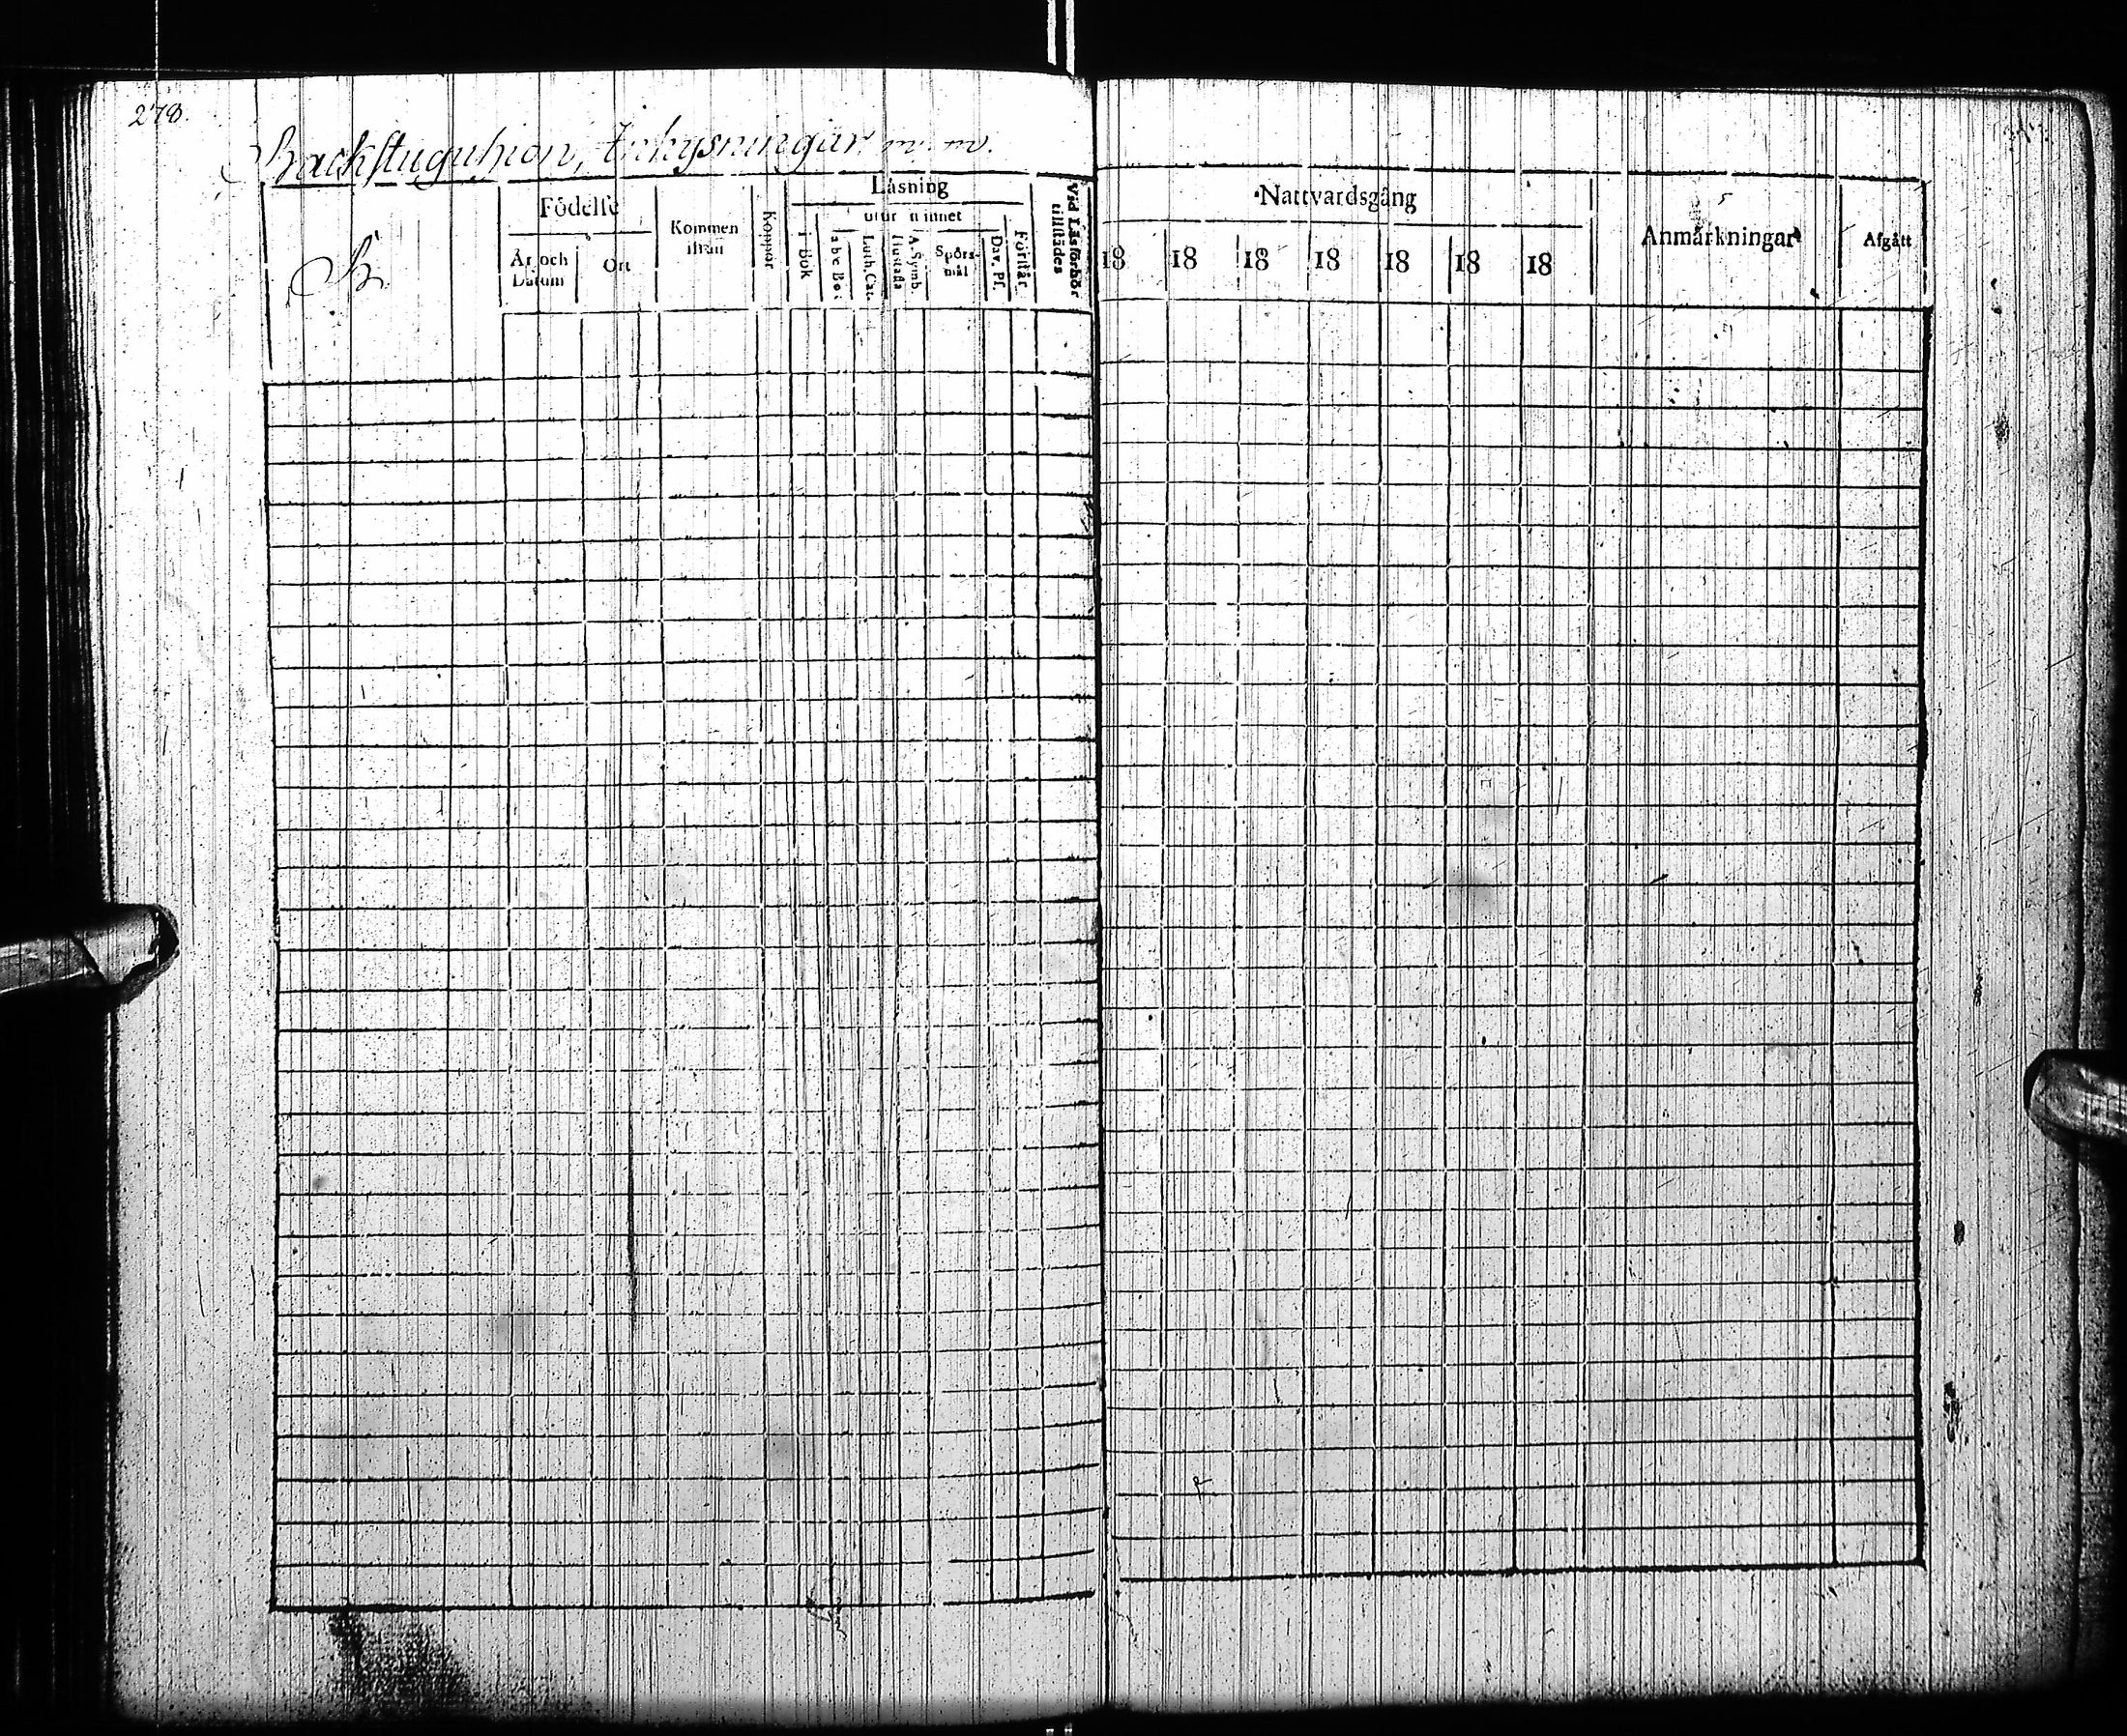 278.
Backstuguhion, Inhysningar m. m.
B.
Födelse
År och Datum
Ort
Kommen ifrån
Koppor
Läsning
utur minnet
i Bok
abc Bok
Luth. Cat.
A. Symb. Hustafla
Spörsmål
Dav. Ps.
Förstår
Vid Läsförhör tillstädes
Nattvardsgång
18 18 18 18 18 18 18
Anmärkningar
Afgått